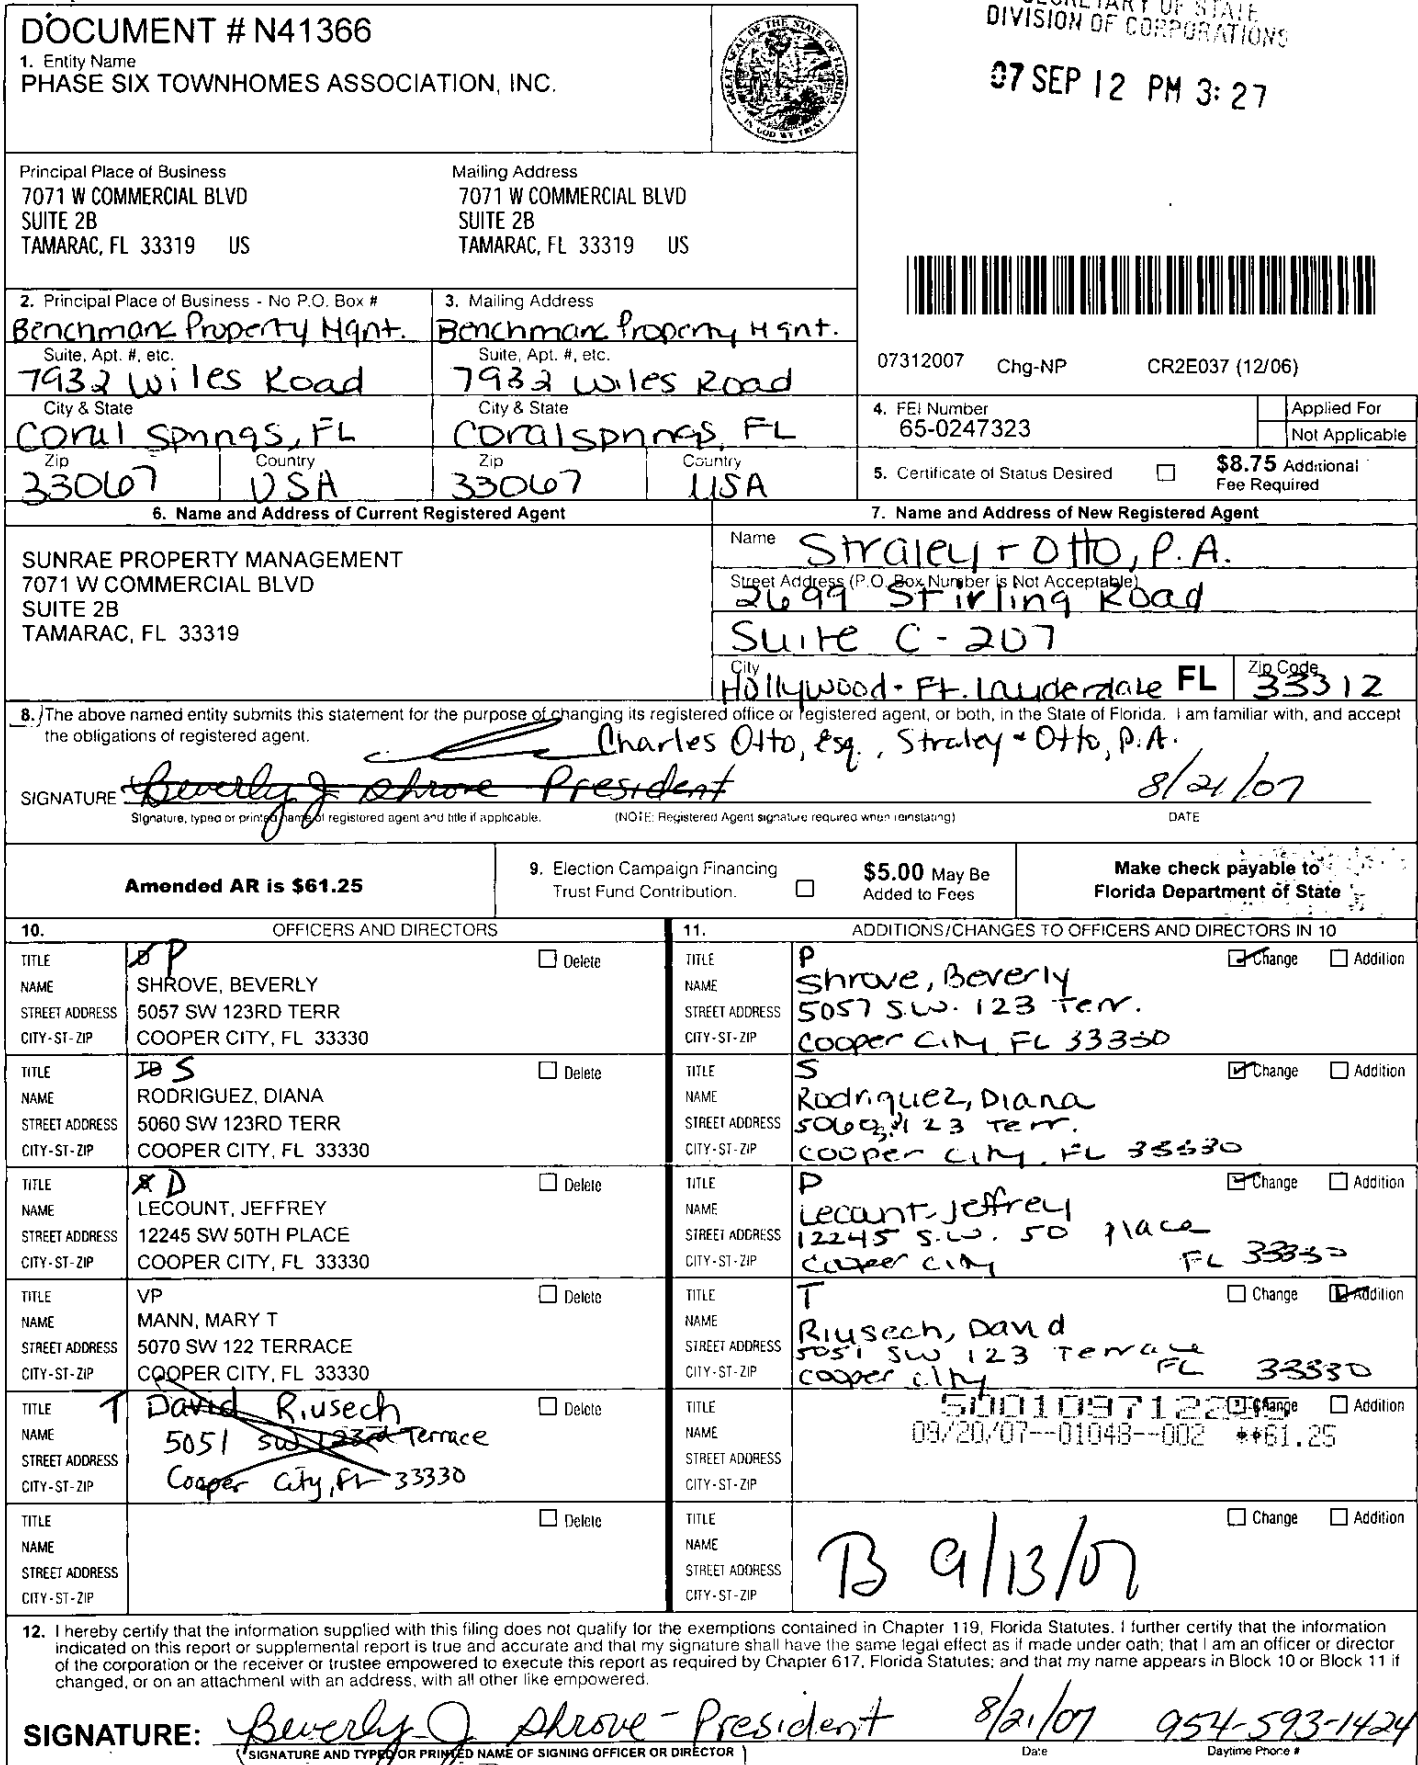 SECRETARY OF STATE
DIVISION OF CORPORATIONS
07 SEP 12 PM 3:27
DOCUMENT # N41366
1. Entity Name
PHASE SIX TOWNHOMES ASSOCIATION, INC.
GREAT SEAL OF THE STATE OF FLORIDA
IN GOD WE TRUST
Principal Place of Business
7071 W COMMERCIAL BLVD
SUITE 2B
TAMARAC, FL 33319 US
Mailing Address
7071 W COMMERCIAL BLVD
SUITE 2B
TAMARAC, FL 33319 US
2. Principal Place of Business - No P.O. Box #
Benchmark Property Mgnt.
Suite, Apt. #, etc.
7932 Wiles Road
City & State
Coral Springs, FL
Zip
33067
Country
USA
3. Mailing Address
Benchmark Property Mgnt.
Suite, Apt. #, etc.
7932 Wiles Road
City & State
Coral Springs, FL
Zip
33067
Country
USA
07312007 Chg-NP CR2E037 (12/06)
4. FEI Number
65-0247323
Applied For
Not Applicable
5. Certificate of Status Desired
$8.75 Additional
Fee Required
6. Name and Address of Current Registered Agent
SUNRAE PROPERTY MANAGEMENT
7071 W COMMERCIAL BLVD
SUITE 2B
TAMARAC, FL 33319
7. Name and Address of New Registered Agent
Name Straley + Otto, P.A.
Street Address (P.O. Box Number is Not Acceptable)
2699 Stirling Road
Suite C-207
City
Hollywood-Ft. Lauderdale FL
Zip Code
33312
8. The above named entity submits this statement for the purpose of changing its registered office or registered agent, or both, in the State of Florida. I am familiar with, and accept
the obligations of registered agent.
Charles Otto, Esq., Straley + Otto, P.A.
SIGNATURE Beverly J Shrove President 8/21/07
Signature, typed or printed name of registered agent and title if applicable. (NOTE: Registered Agent signature required when reinstating) DATE
Amended AR is $61.25
9. Election Campaign Financing
Trust Fund Contribution.
$5.00 May Be
Added to Fees
Make check payable to
Florida Department of State
10. OFFICERS AND DIRECTORS
TITLE D P Delete
NAME SHROVE, BEVERLY
STREET ADDRESS 5057 SW 123RD TERR
CITY-ST-ZIP COOPER CITY, FL 33330
TITLE S Delete
NAME RODRIGUEZ, DIANA
STREET ADDRESS 5060 SW 123RD TERR
CITY-ST-ZIP COOPER CITY, FL 33330
TITLE D Delete
NAME LECOUNT, JEFFREY
STREET ADDRESS 12245 SW 50TH PLACE
CITY-ST-ZIP COOPER CITY, FL 33330
TITLE VP Delete
NAME MANN, MARY T
STREET ADDRESS 5070 SW 122 TERRACE
CITY-ST-ZIP COOPER CITY, FL 33330
TITLE T David Riusech Delete
NAME 5051 SW 123rd Terrace
STREET ADDRESS
CITY-ST-ZIP Cooper City, FL 33330
TITLE Delete
NAME
STREET ADDRESS
CITY-ST-ZIP
11. ADDITIONS/CHANGES TO OFFICERS AND DIRECTORS IN 10
TITLE P Change Addition
NAME Shrove, Beverly
STREET ADDRESS 5057 S.W. 123 Terr.
CITY-ST-ZIP Cooper City FL 33330
TITLE S Change Addition
NAME Rodriguez, Diana
STREET ADDRESS 123 Terr.
CITY-ST-ZIP Cooper City, FL 33330
TITLE D Change Addition
NAME Lecount, Jeffrey
STREET ADDRESS 12245 S.W. 50 place
CITY-ST-ZIP Cooper City FL 33330
TITLE T Change Addition
NAME Riusech, David
STREET ADDRESS 5051 SW 123 Terrace
CITY-ST-ZIP Cooper City FL 33330
TITLE Change Addition
NAME 09/20/07--01048--002 **61.25
STREET ADDRESS
CITY-ST-ZIP
TITLE Change Addition
NAME
STREET ADDRESS B 9/13/07
CITY-ST-ZIP
12. I hereby certify that the information supplied with this filing does not qualify for the exemptions contained in Chapter 119, Florida Statutes. I further certify that the information
indicated on this report or supplemental report is true and accurate and that my signature shall have the same legal effect as if made under oath; that I am an officer or director
of the corporation or the receiver or trustee empowered to execute this report as required by Chapter 617, Florida Statutes; and that my name appears in Block 10 or Block 11 if
changed, or on an attachment with an address, with all other like empowered.
SIGNATURE: Beverly J Shrove - President 8/21/07 954-593-1424
SIGNATURE AND TYPED OR PRINTED NAME OF SIGNING OFFICER OR DIRECTOR Date Daytime Phone #